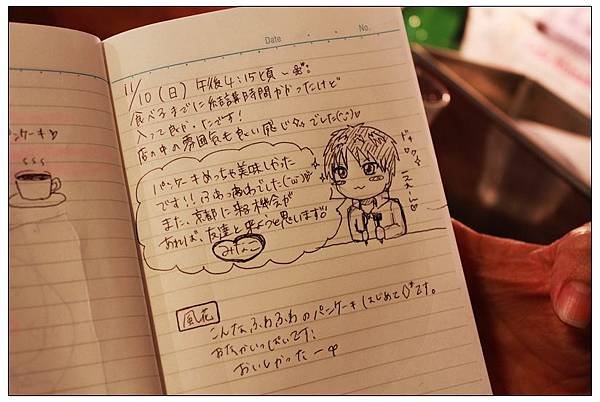 Date
No.
11/10(日) 午後4:15頃〜
食べるまでに結構時間かかったけど
入って良かったです!
店の中の雰囲気も良い感じでした(^ω^)
パンケーキめっちゃ美味しかった
です!! ふわっふわでした(^ω^)
また、京都に来る機会が
あれば、友達と来ようと思います
みなこ
ドキ
風花
こんなふわふわのパンケーキはじめてです。
おなかいっぱいです!
おいしかったー
ンケーキ♡